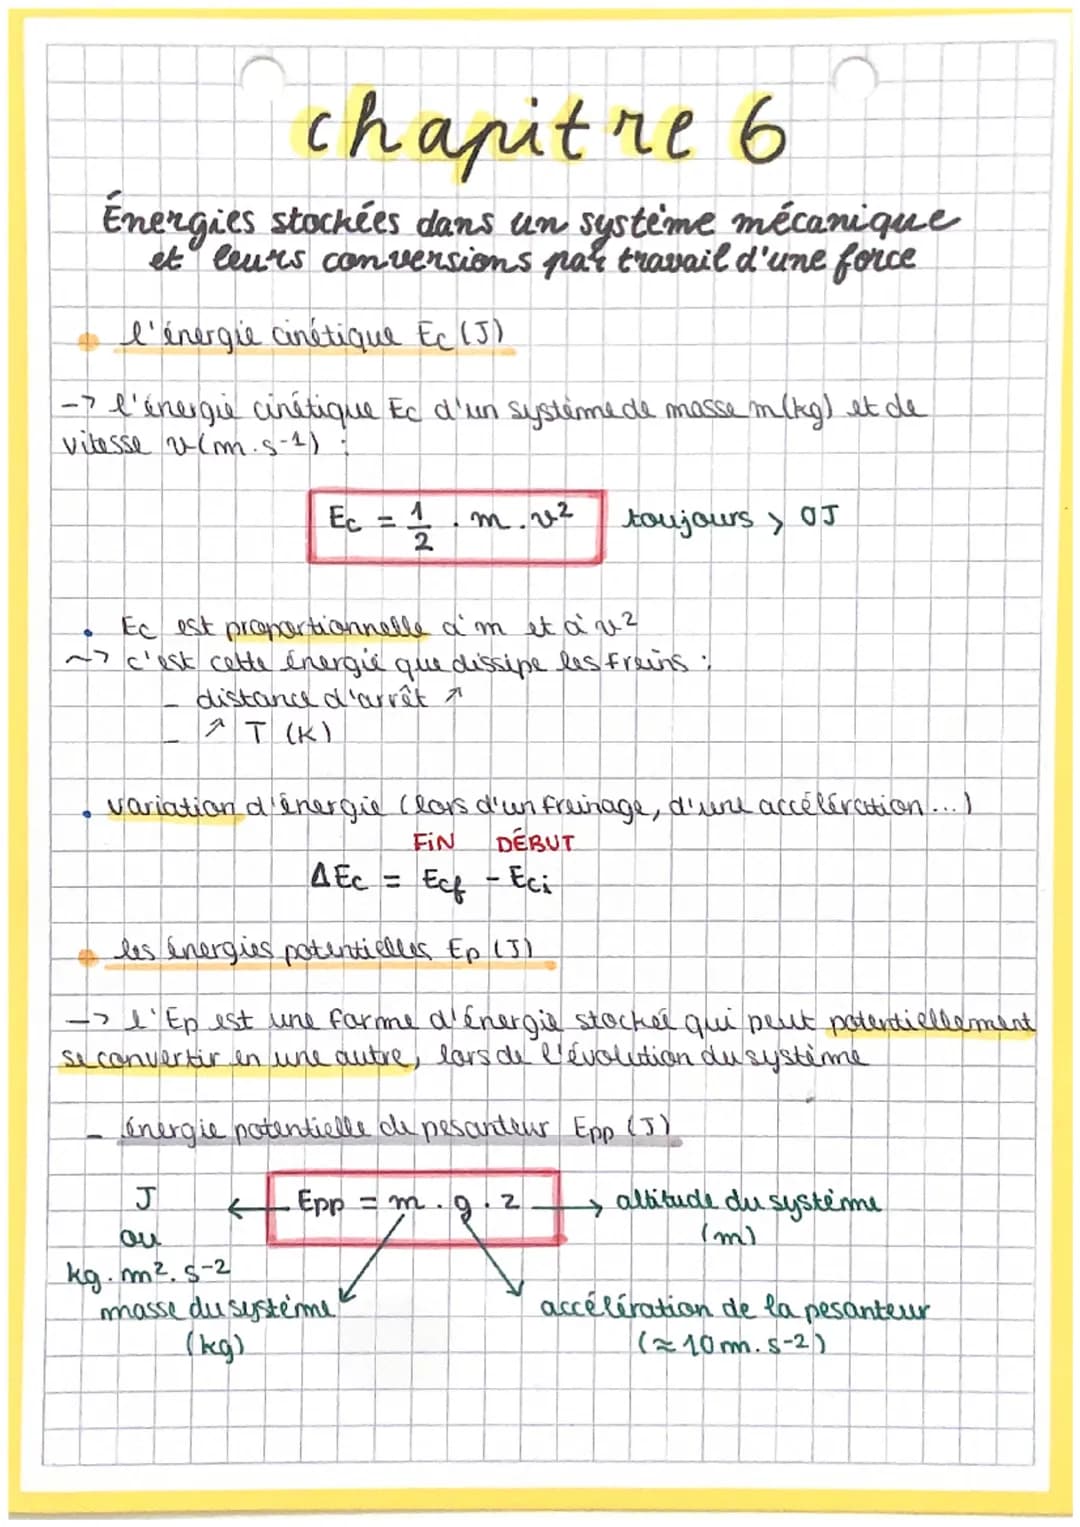 chapitre 6
Énergies stockées dans un système mécanique
et leurs conversions par travail d'une force
l'énergie cinétique Ec (J)
-> l'énergie cinétique Ec d'un système de masse m(kg) et de
vitesse v(m.s-1) :
Ec = 1/2 . m . v² toujours > 0J
• Ec est proportionnelle à m et à v²
~> c'est cette énergie que dissipe les freins :
- distance d'arrêt ↗
- ↗ T (K)
• variation d'énergie (lors d'un freinage, d'une accélération...)
FiN DÉBUT
ΔEc = Ecf - Eci
les énergies potentielles Ep (J)
-> l'Ep est une forme d'énergie stockée qui peut potentiellement
se convertir en une autre, lors de l'évolution du système
- énergie potentielle de pesanteur Epp (J)
J ← Epp = m . g . z → altitude du système
ou (m)
kg . m². s-2
masse du système accélération de la pesanteur
(kg) (≈ 10 m. s-2)